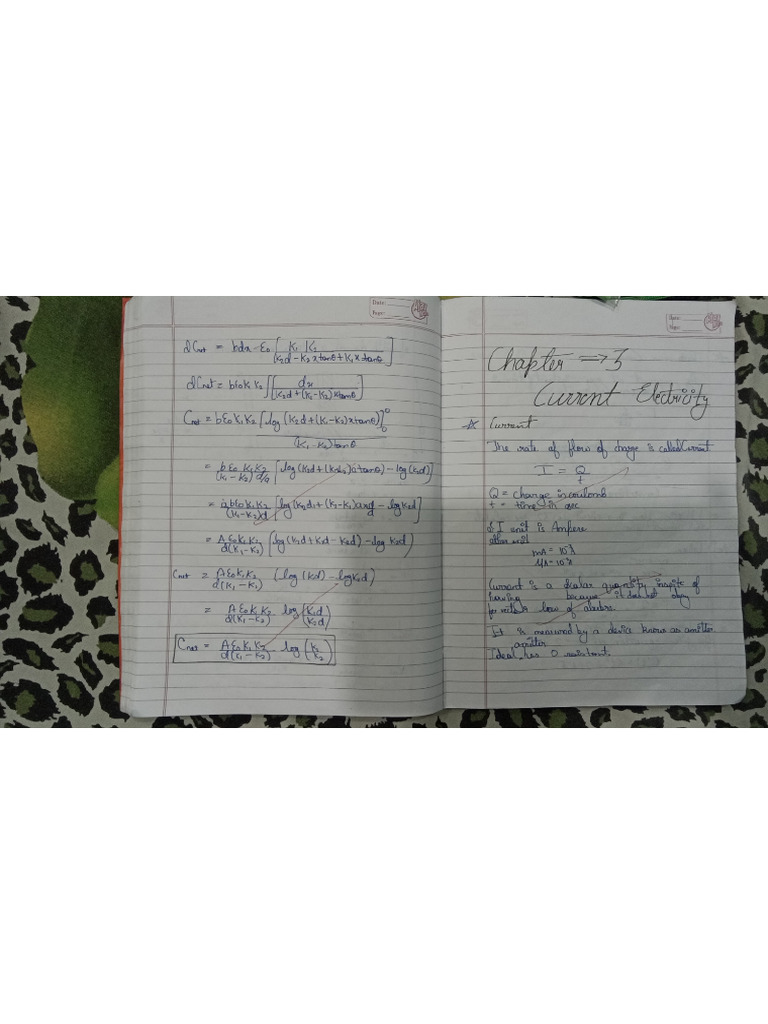 Date:
Page:
dCnet = bdx ε0 [K1 K2 / (K2d - K2 x tanθ + K1 x tanθ)]
dCnet = bε0 K1 K2 ∫[dx / (K2d + (K1-K2) x tanθ)]
Cnet = bε0 K1 K2 [log (K2d + (K1-K2) x tanθ)]
(K1 - K2) tanθ
= b ε0 K1 K2 / (K1 - K2) d/a [log (K2d + (K1-K2) a tanθ) - log (K2d)]
= a b ε0 K1 K2 / (K1 - K2) d
= A ε0 K1 K2 / d(K1 - K2) [log (K2d + K1d - K2d) - log K2d]
Cnet = A ε0 K1 K2 / d(K1 - K2) (log (K1d) - log K2d)
= A ε0 K1 K2 / d(K1 - K2) log (K1d / K2d)
Cnet = A ε0 K1 K2 / d(K1 - K2) log
Date:
Page:
Chapter ⇒ 3
Current Electricity
☆ Current
The rate of flow of charge is called current
I = Q / t
Q = charge in coulomb
t = time in sec
S I unit is Ampere
other unit
Current is a scalar quantity inspite of
having because it does not obey
law of
It is measured by a device known as
Ideal has 0 resistant.